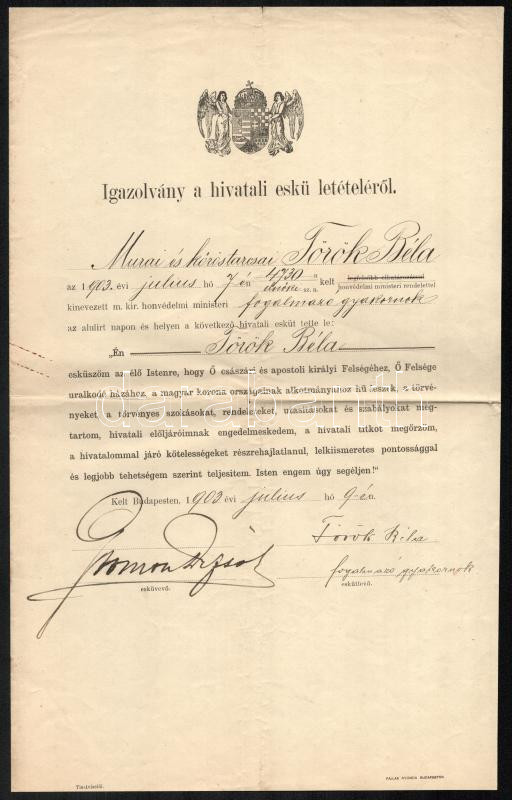 Igazolvány a hivatali eskü letételéről.
Murai és köröstarcsai Török Béla
az 1903. évi július hó 7-én 4730 sz. a. kelt legfelsőbb elhatározással
elnöki honvédelmi ministeri rendelettel
kinevezett m. kir. honvédelmi ministeri fogalmazó gyakornok
az alulirt napon és helyen a következő hivatali esküt tette le:
„Én Török Béla
esküszöm az élő Istenre, hogy Ő császári és apostoli királyi Felségéhez, Ő Felsége
uralkodó házához, a magyar korona országainak alkotmányához hű leszek, a törvé-
nyeket, a törvényes szokásokat, rendeleteket, utasitásokat és szabályokat meg-
tartom, hivatali elöljáróimnak engedelmeskedem, a hivatali titkot megőrzöm,
a hivatalommal járó kötelességeket részrehajlatlanul, lelkiismeretes pontossággal
és legjobb tehetségem szerint teljesitem. Isten engem úgy segéljen!"
Kelt Budapesten, 1903 évi július hó 9-én.
Török Béla
Gromon Dezső
fogalmazó gyakornok
esküvevő.
eskütevő.
darabanth
Tisztviselői.
PALLAS NYOMDA BUDAPESTEN